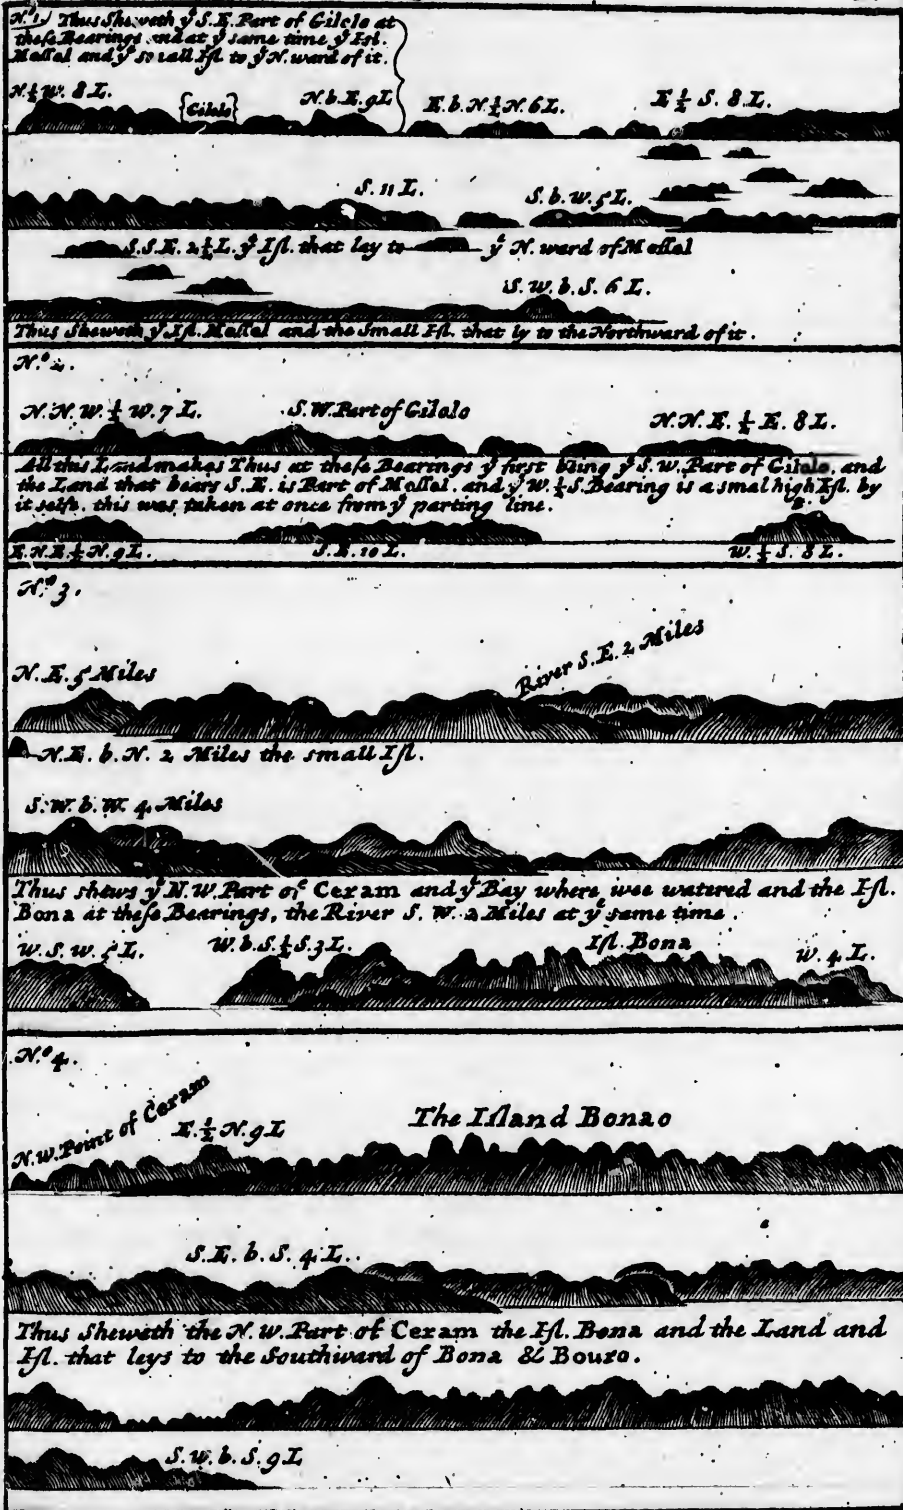 N.º 1. Thus Sheweth yͤ S.E. Part of Gilolo at
these Bearings and at yͤ same time yͤ Isl.
Messel and yͤ small Isl. to yͤ N. ward of it.
N.½ W. 8 L.
{Gilolo}
N. b. E. 9 L
E. b. N. ½ N. 6 L.
E ½ S. 8. L.
S. 11 L.
S. b. W. 5 L.
S.S.E. 2½ L. yͤ Isl. that lay to yͤ N. ward of Messel
S. W. b. S. 6 L.
Thus Sheweth yͤ Isl. Messel and the Small Isl. that ly to the Northward of it.
N.º 2.
N. N. W. ½ W. 7 L.
S. W. Part of Gilolo
N. N. E. ½ E. 8 L.
All this Land makes Thus at these Bearings yͤ first being yͤ S. W. Part of Gilolo, and
the Land that bears S. E. is Part of Messel, and yͤ W. ½ S. Bearing is a smal high Isl. by
it selfe, this was taken at once from yͤ parting line.
E. N. E. ½ N. 9 L.
S. E. 10 L.
W. ½ S. 8 L.
N.º 3.
N. E. 5 Miles
River S. E. 2 Miles
N. E. b. N. 2 Miles the small Isl.
S. W. b. W. 4 Miles
Thus shews yͤ N. W. Part of Ceram and yͤ Bay where wee watered and the Isl.
Bona at these Bearings, the River S. W. 2 Miles at yͤ same time.
W. S. W. 5 L.
W. b. S. ½ S. 3 L.
Isl. Bona
W. 4 L.
N.º 4.
N. W. Point of Ceram
E. ½ N. 9 L
The Island Bonao
S. E. b. S. 4 L.
Thus Sheweth the N. W. Part of Ceram the Isl. Bona and the Land and
Isl. that leys to the Southward of Bona & Bouro.
S. W. b. S. 9 L